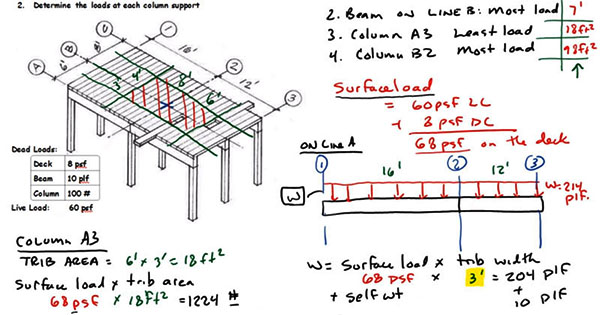 2. Determine the loads at each column support
A
B
C
1
2
3
6'
8'
16'
12'
3'
4'
8'
6'
Dead Loads:
Deck 8 psf
Beam 10 plf
Column 100 #
Live Load: 60 psf
Column A3
TRIB AREA = 6' x 3' = 18 ft²
Surface load x trib area
68 psf x 18 ft² = 1224 #
2. Beam on LINE B: Most load 7'
3. Column A3 Least load 18 ft²
4. Column B2 Most load 98 ft²
Surface load
= 60 psf LL
+ 8 psf DL
68 psf on the deck
ON LINE A
1 2 3
16' 12'
W
W= 214 plf.
W = Surface load x trib width
68 psf x 3' = 204 plf
+ self wt + 10 plf